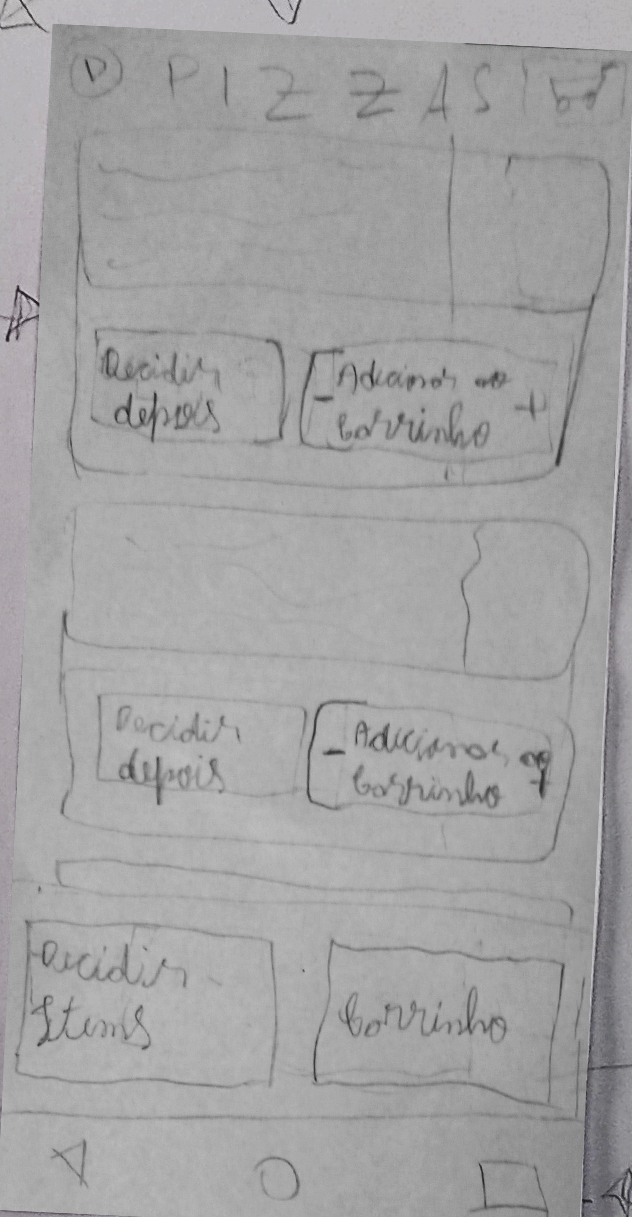 PIZZAS
Decidir
depois
- Adicionar ao +
Carrinho
Decidir
depois
- Adicionar ao +
Carrinho
Decidir
Items
Carrinho